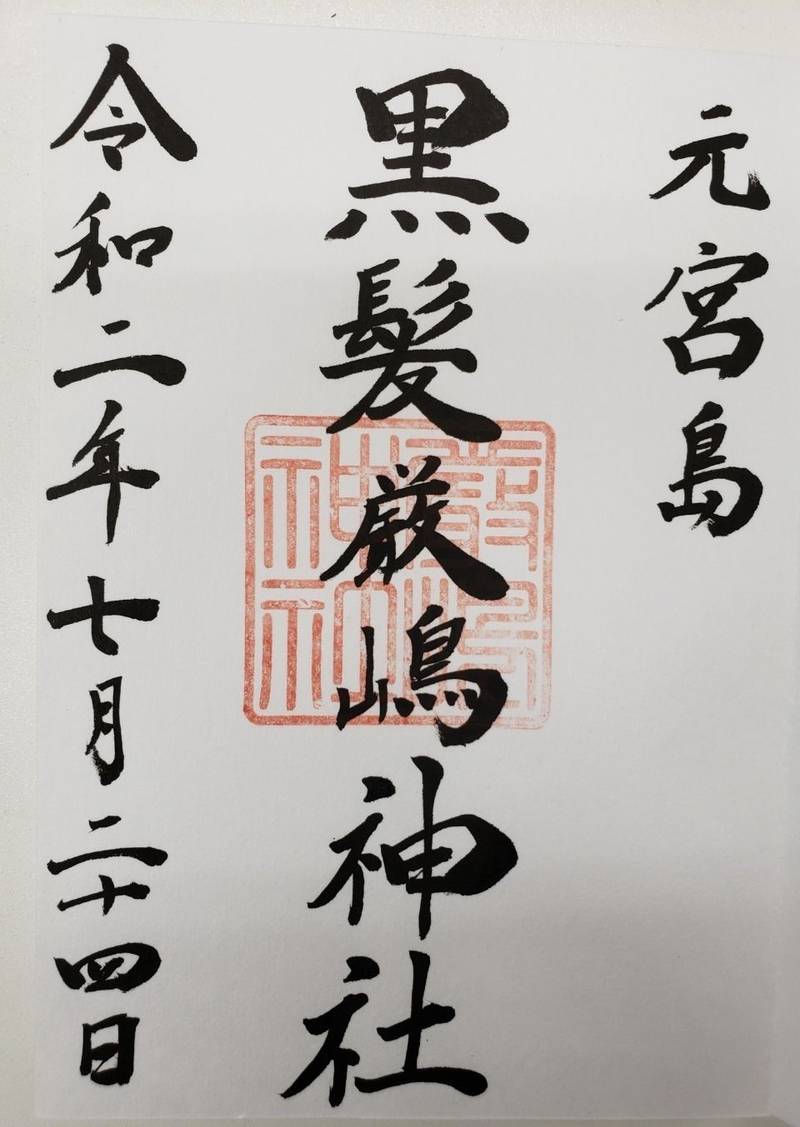 元宮島
黒髪厳嶋神社
厳嶋神社
令和二年七月二十四日